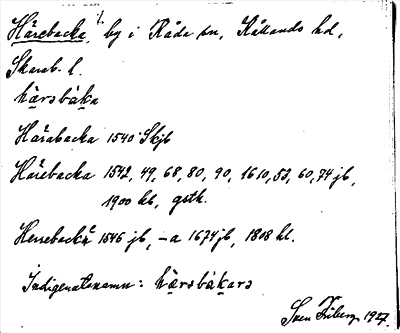 Härebacka, by i Råda sn, Kållands hd,
Skarab. l.
hærsbáka
Härabacka 1540 Skjb
Härebacka 1542, 49, 68, 80, 90, 1610, 53, 60, 74 jb,
1900 kb, gstk.
Herrebacka 1546 jb, -a 1674 jb, 1808 hl.
Indigenatsnamn: hærsbákars
Sven Friberg 1927